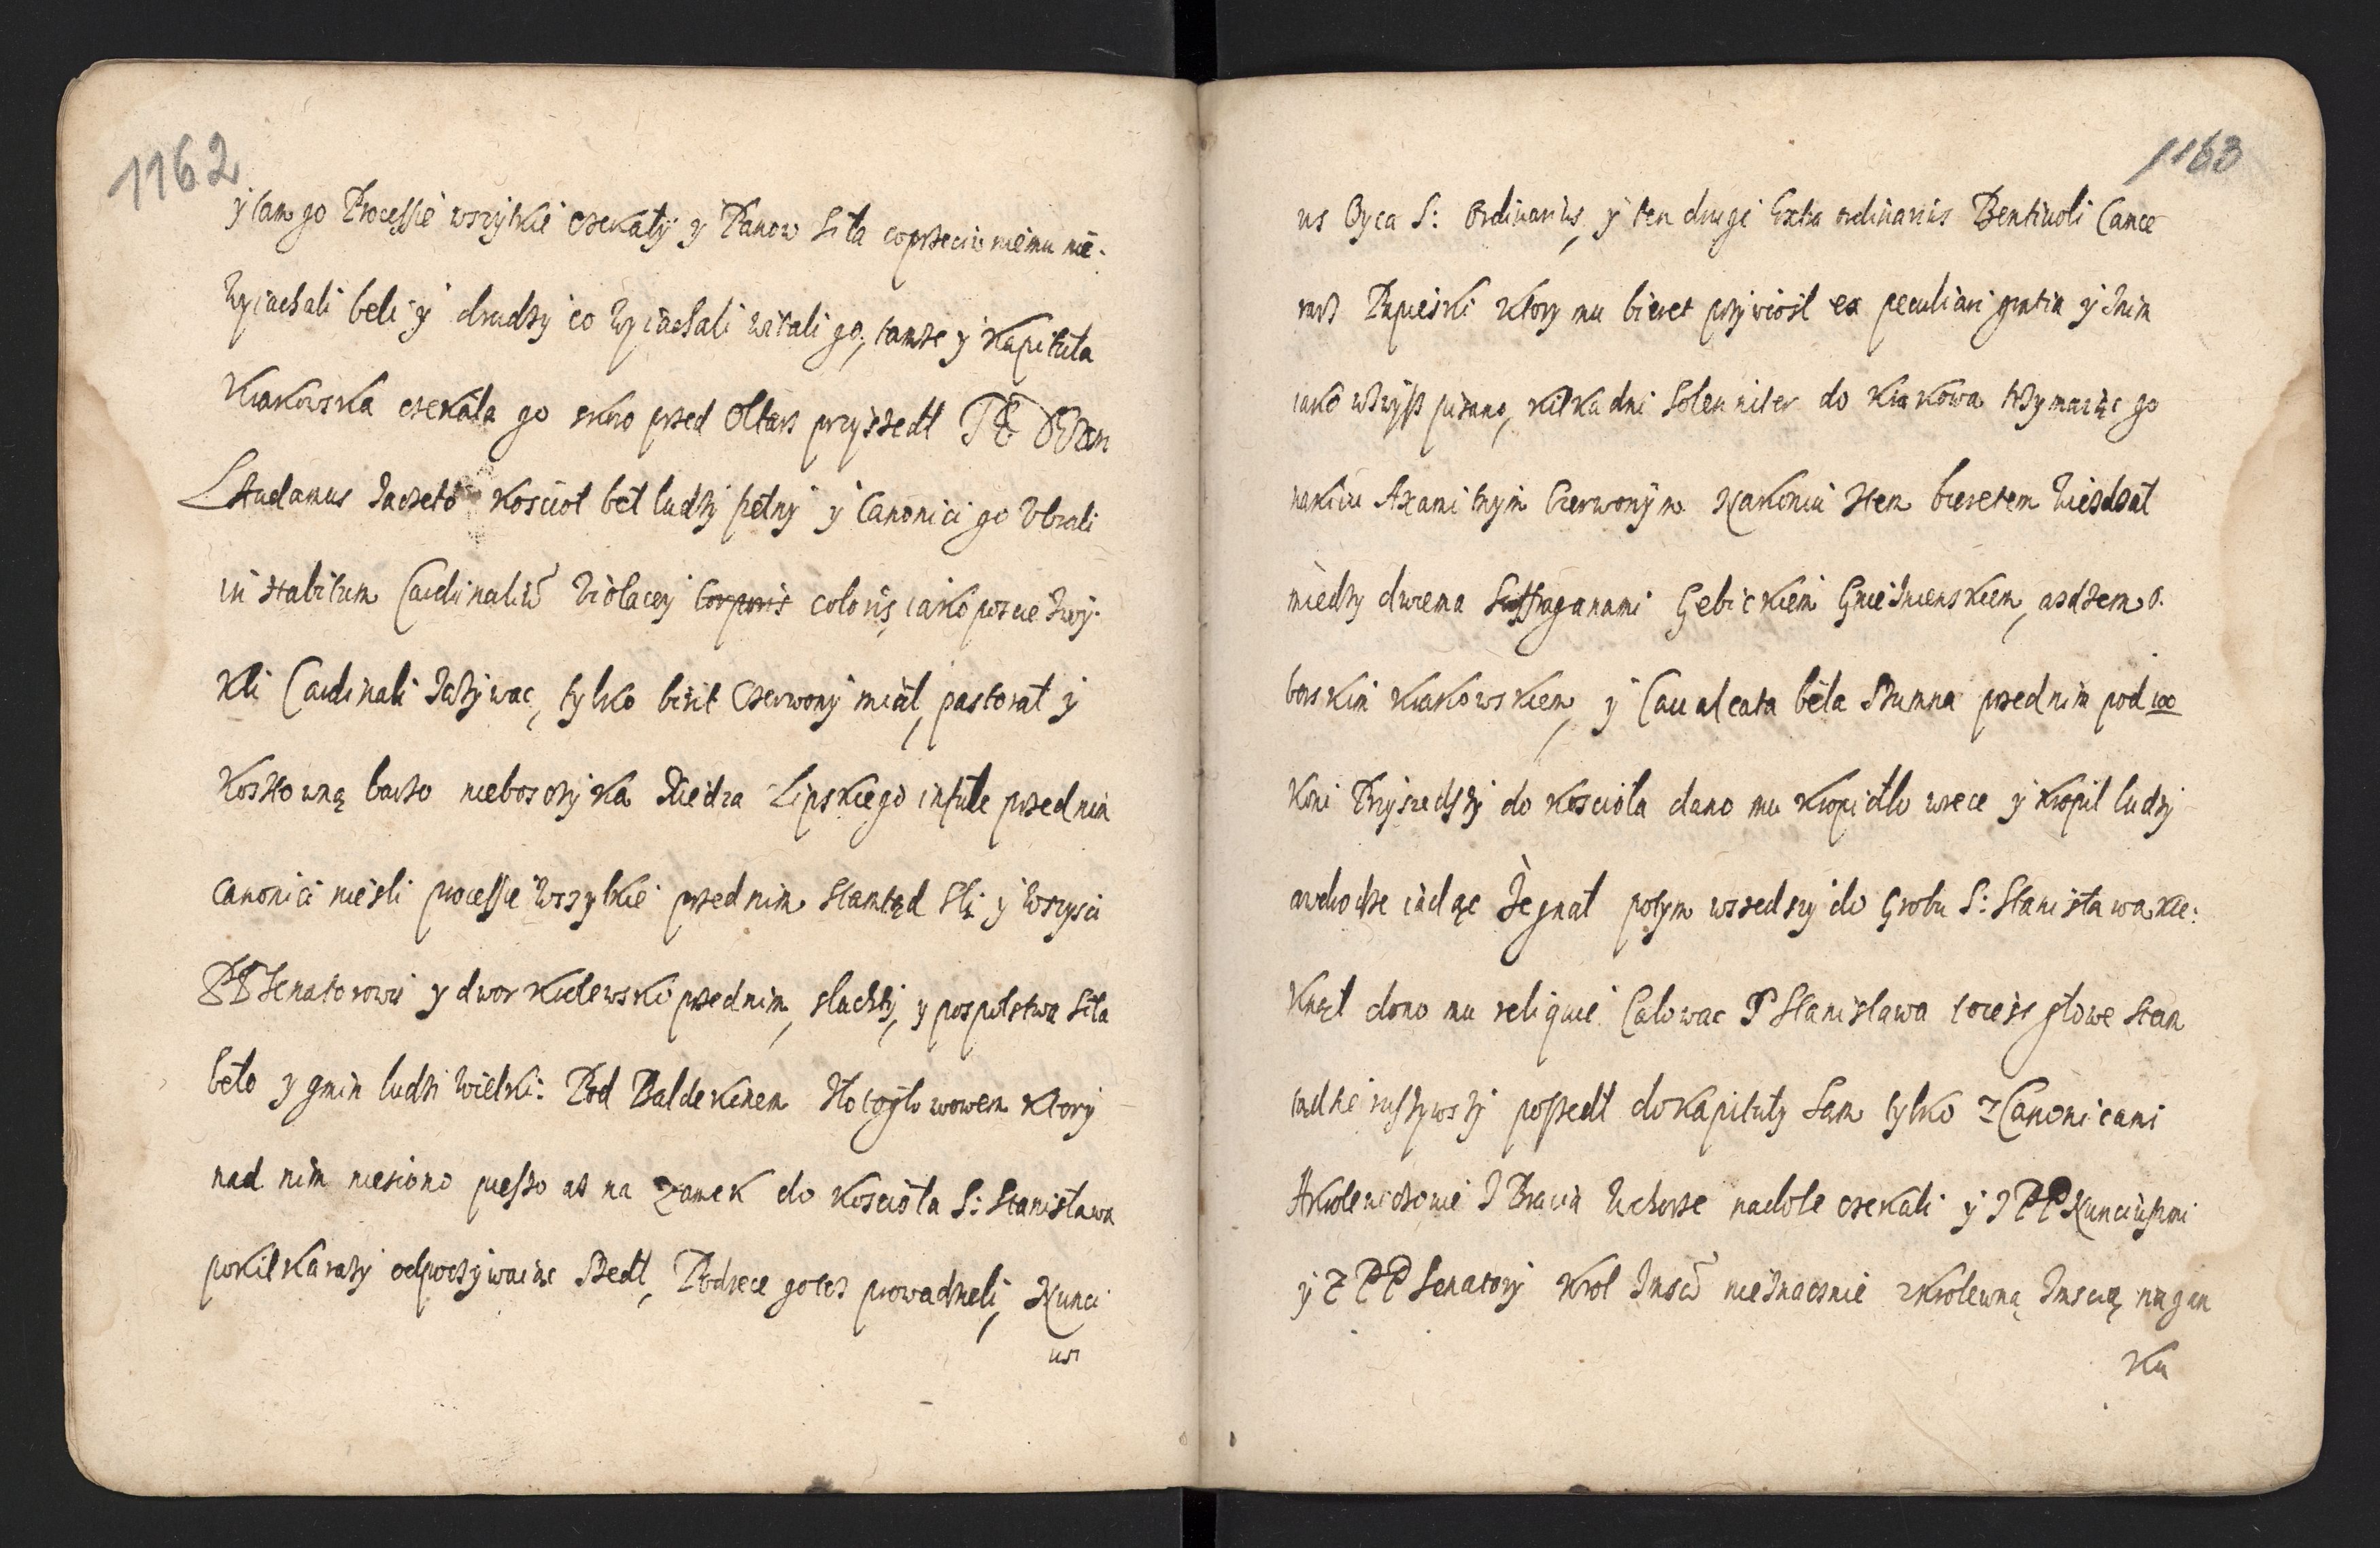 1162
y tam go Processie wszytkie czekały y Panow Siła co przeciw niemu nie-
wyiachali beli y drudzy co wyiachali witali go, tamze y Kapituła
Krakowska czekała go skoro przed Ołtarz przyszedł TE DEum
LAudamus zaczeto Kościoł beł ludzy pełny y Canonici go Vbrali
in Habitum Cardinaliũ Violacey Corporis coloris, iako poscie zwy-
kli Cardinali zazywac, tylko biret Czerwony miał, pastorał y
Kosztowną barzo nieboszczyka Xiedza Lipskiego infułe przed nim
Canonici niesli processie wszytkie przed nim stamtąd szli y wszysci
PP Senatorowie y dwor Krolewski przed nim, slachty, y pospolstwa Siła
beło y gmin ludzi wielki: Pod Baldekinem złotogłowowem ktory
nad nim niesiono pieszo asz na Zamek do Kościoła S: Stanisława
pokilka razy odpoczywaiąc szedł, Podrece go tesz prowadzieli, Nunci
us
1163
us Oyca S: Ordinarius, y ten drugi Extra ordinarius Bentiuoli Came
rarz Papieski ktory mu biret przywiosł ex peculiari gratia y znim
iako wzwysz pisano, kilka dni Solenniter do Krakowa trzymaiąc go
nakoniu Axamitnym Czerwonym. Nakoniu ztem biretem wiezdzał
miedzy dwiema Suffraganami Gebickiem Gnieznienskiem, a
borskim Krakowskiem, y Caualcata beła Szumna przed nim pod 100
koni Przyszedszy do Kościoła dano mu kropidło wrece y kropił ludzy
awchodze idąc Zegnał potym wszedszy do Grobu S: Stanisława kle:
knął dano mu reliquie Całowac S Stanisława toiest głowe stam
tadze ruszywszy poszedł do Kapituły Sam tylko z Canonicami
AKrolewiczowie I Bracia wchorze nadole czekali y I PP Nunciuszmi
y z PP Senatory Krol Imsc̃ nieznacznie zkrolewną Imscią nagan
ku